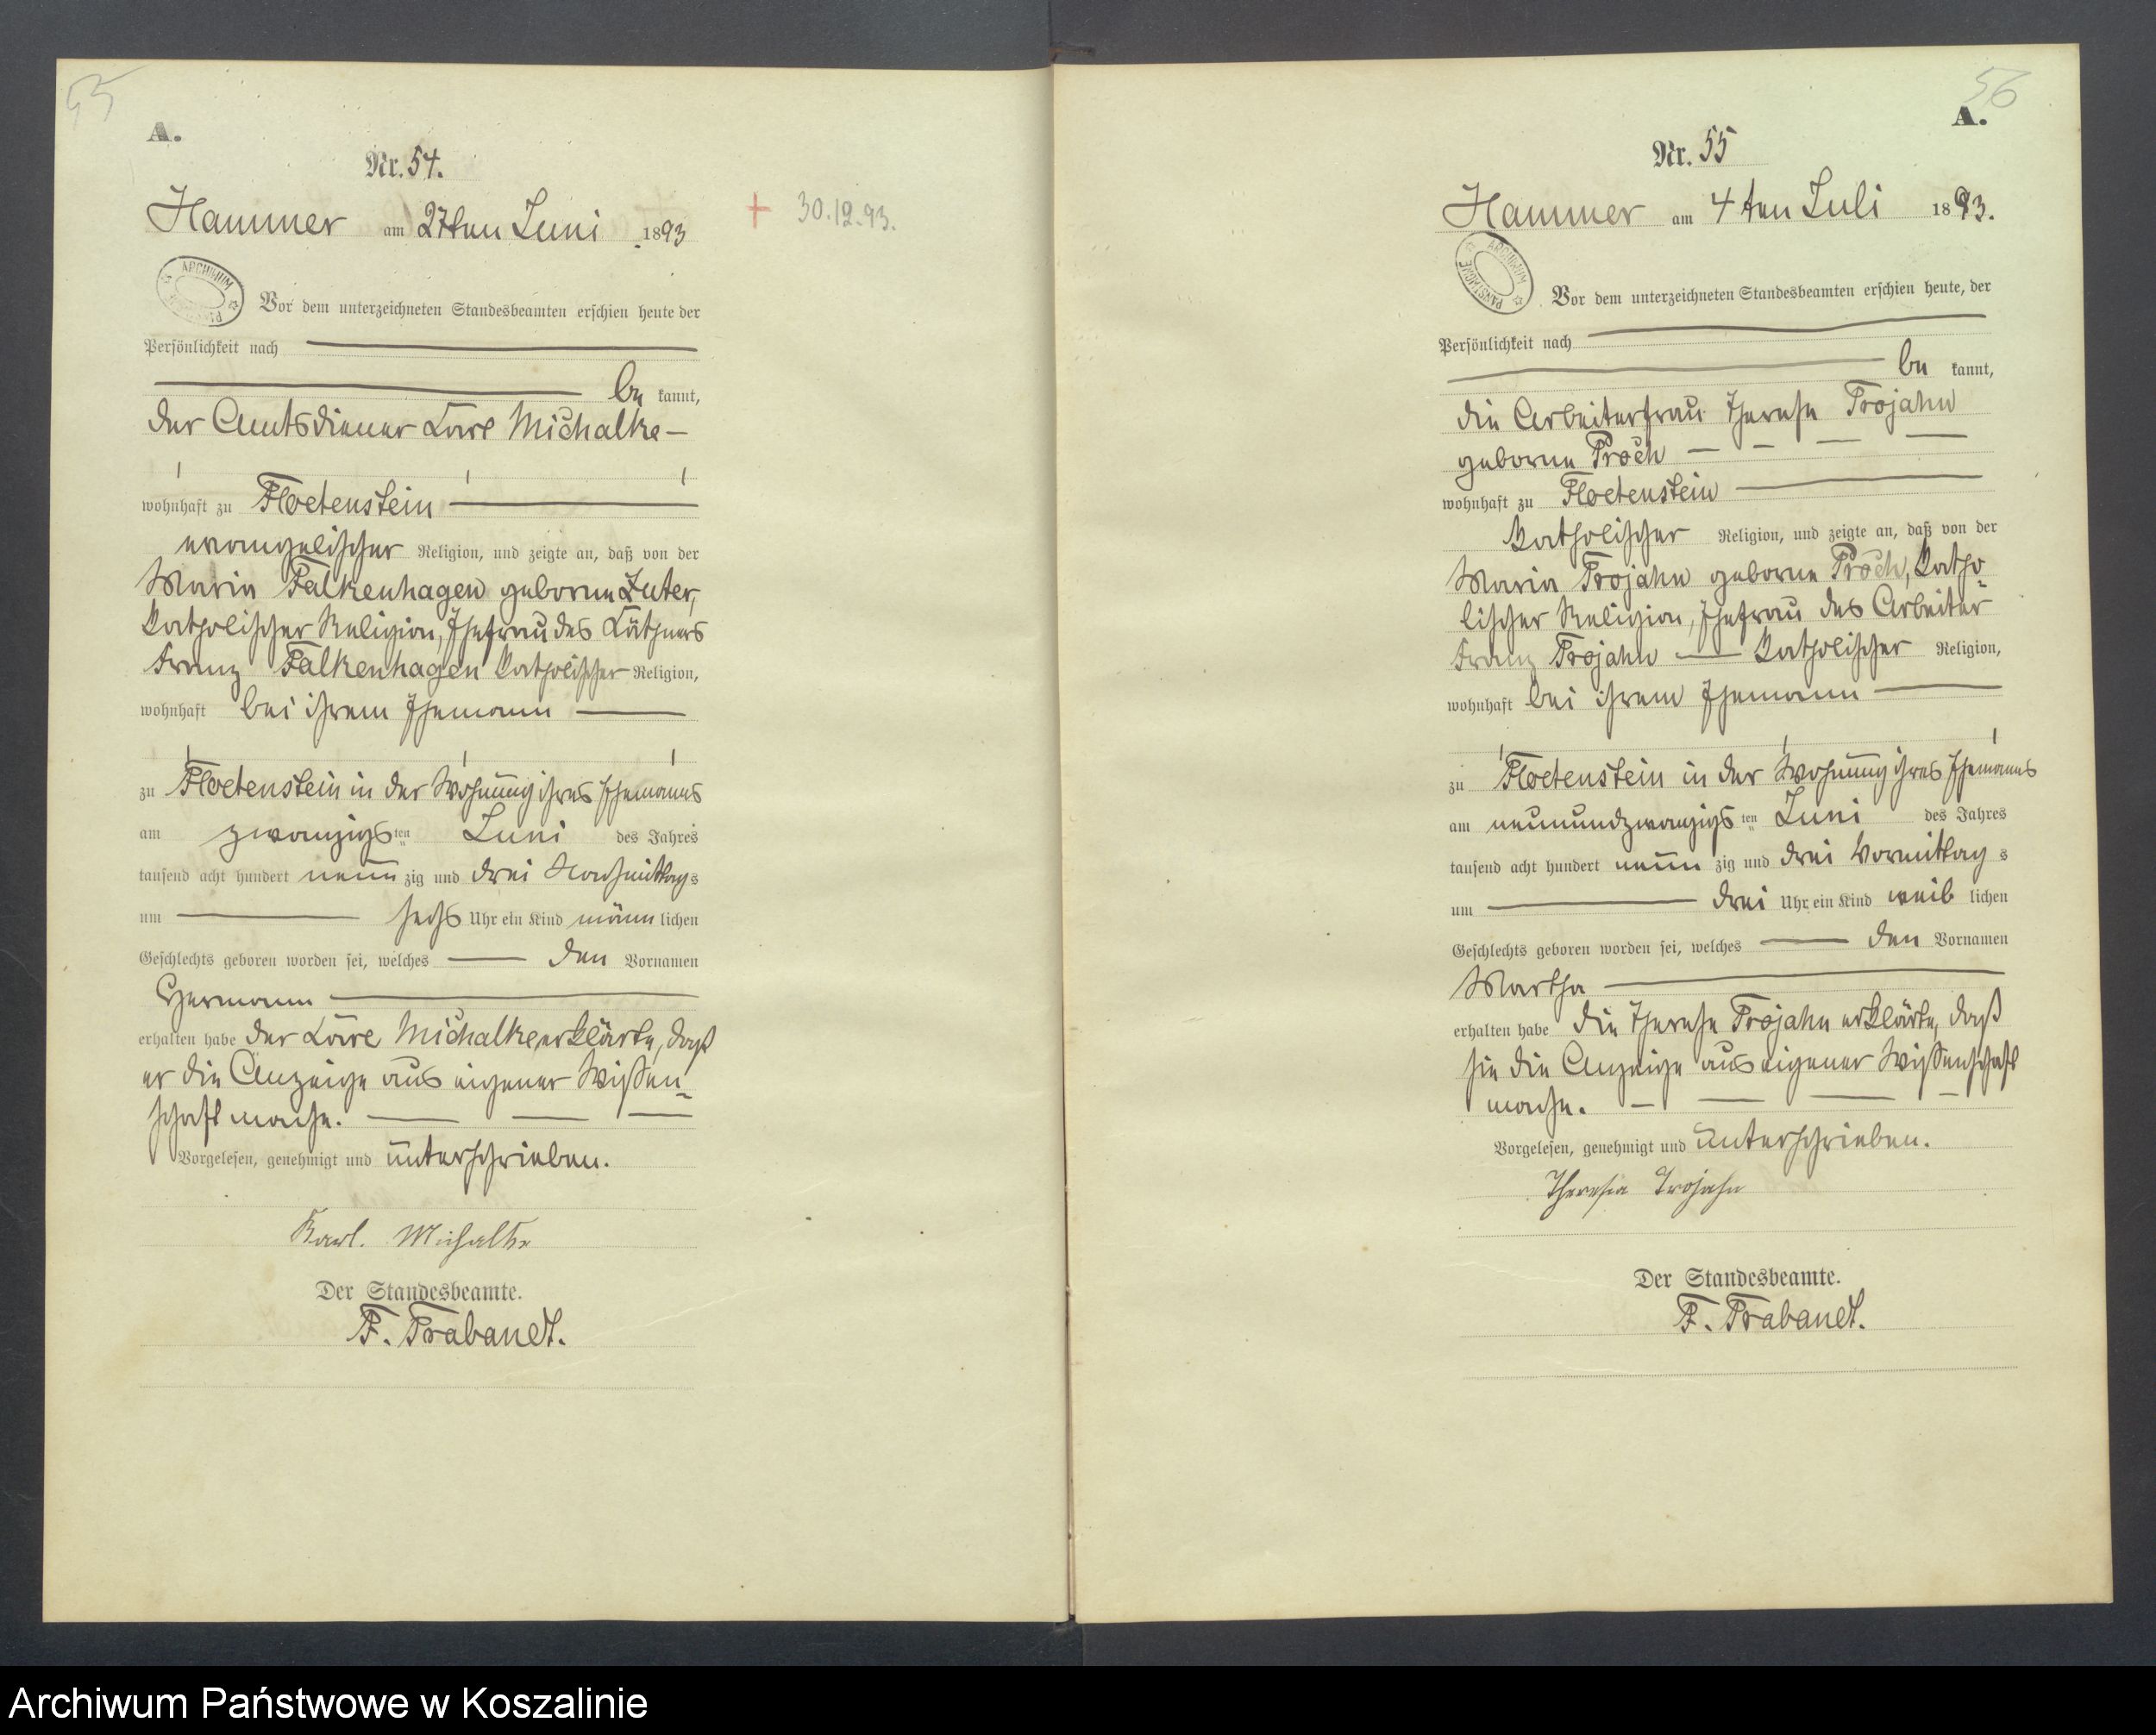 55
A.
Nr. 54.
Hammer am 27ten Juni 1893
+ 30.12.93.
ARCHIWUM
Vor dem unterzeichneten Standesbeamten erschien heute der
Persönlichkeit nach
be kannt,
der Amtsdiener Karl Michalke
wohnhaft zu Floetenstein
evangelischer Religion, und zeigte an, daß von der
Maria Falkenhagen geborne
katholischer Religion, Ehefrau des Käthners
Franz Falkenhagen katholischer Religion,
wohnhaft bei ihrem Ehemann
zu Floetenstein in der Wohnung ihres Ehemanns
am zwanzigsten Juni des Jahres
tausend acht hundert neun zig und drei Nachmittags
um sechs Uhr ein Kind männlichen
Geschlechts geboren worden sei, welches den Vornamen
Hermann
erhalten habe der Karl Michalke erklärte, daß
er die Anzeige aus eigener Wissen-
schaft mache.
Vorgelesen, genehmigt und unterschrieben.
Karl. Michalke
Der Standesbeamte.
F. Trabandt.
56
A.
Nr. 55
Hammer am 4ten Juli 1893.
ARCHIWUM PAŃSTWOWE
Vor dem unterzeichneten Standesbeamten erschien heute, der
Persönlichkeit nach
be kannt,
die Arbeiterfrau Therese Trojahn
geborne Proch
wohnhaft zu Floetenstein
katholischer Religion, und zeigte an, daß von der
Maria Trojahn geborne Proch, katho-
lischer Religion, Ehefrau des Arbeiter
Franz Trojahn katholischer Religion,
wohnhaft bei ihrem Ehemann
zu Floetenstein in der Wohnung ihres Ehemanns
am neunundzwanzigsten Juni des Jahres
tausend acht hundert neun zig und drei Vormittags
um drei Uhr ein Kind weiblichen
Geschlechts geboren worden sei, welches den Vornamen
Martha
erhalten habe die Therese Trojahn erklärte, daß
sie die Anzeige aus eigener Wissenschaft
mache.
Vorgelesen, genehmigt und unterschrieben.
Theresia Trojahn
Der Standesbeamte.
F. Trabandt.
Archiwum Państwowe w Koszalinie